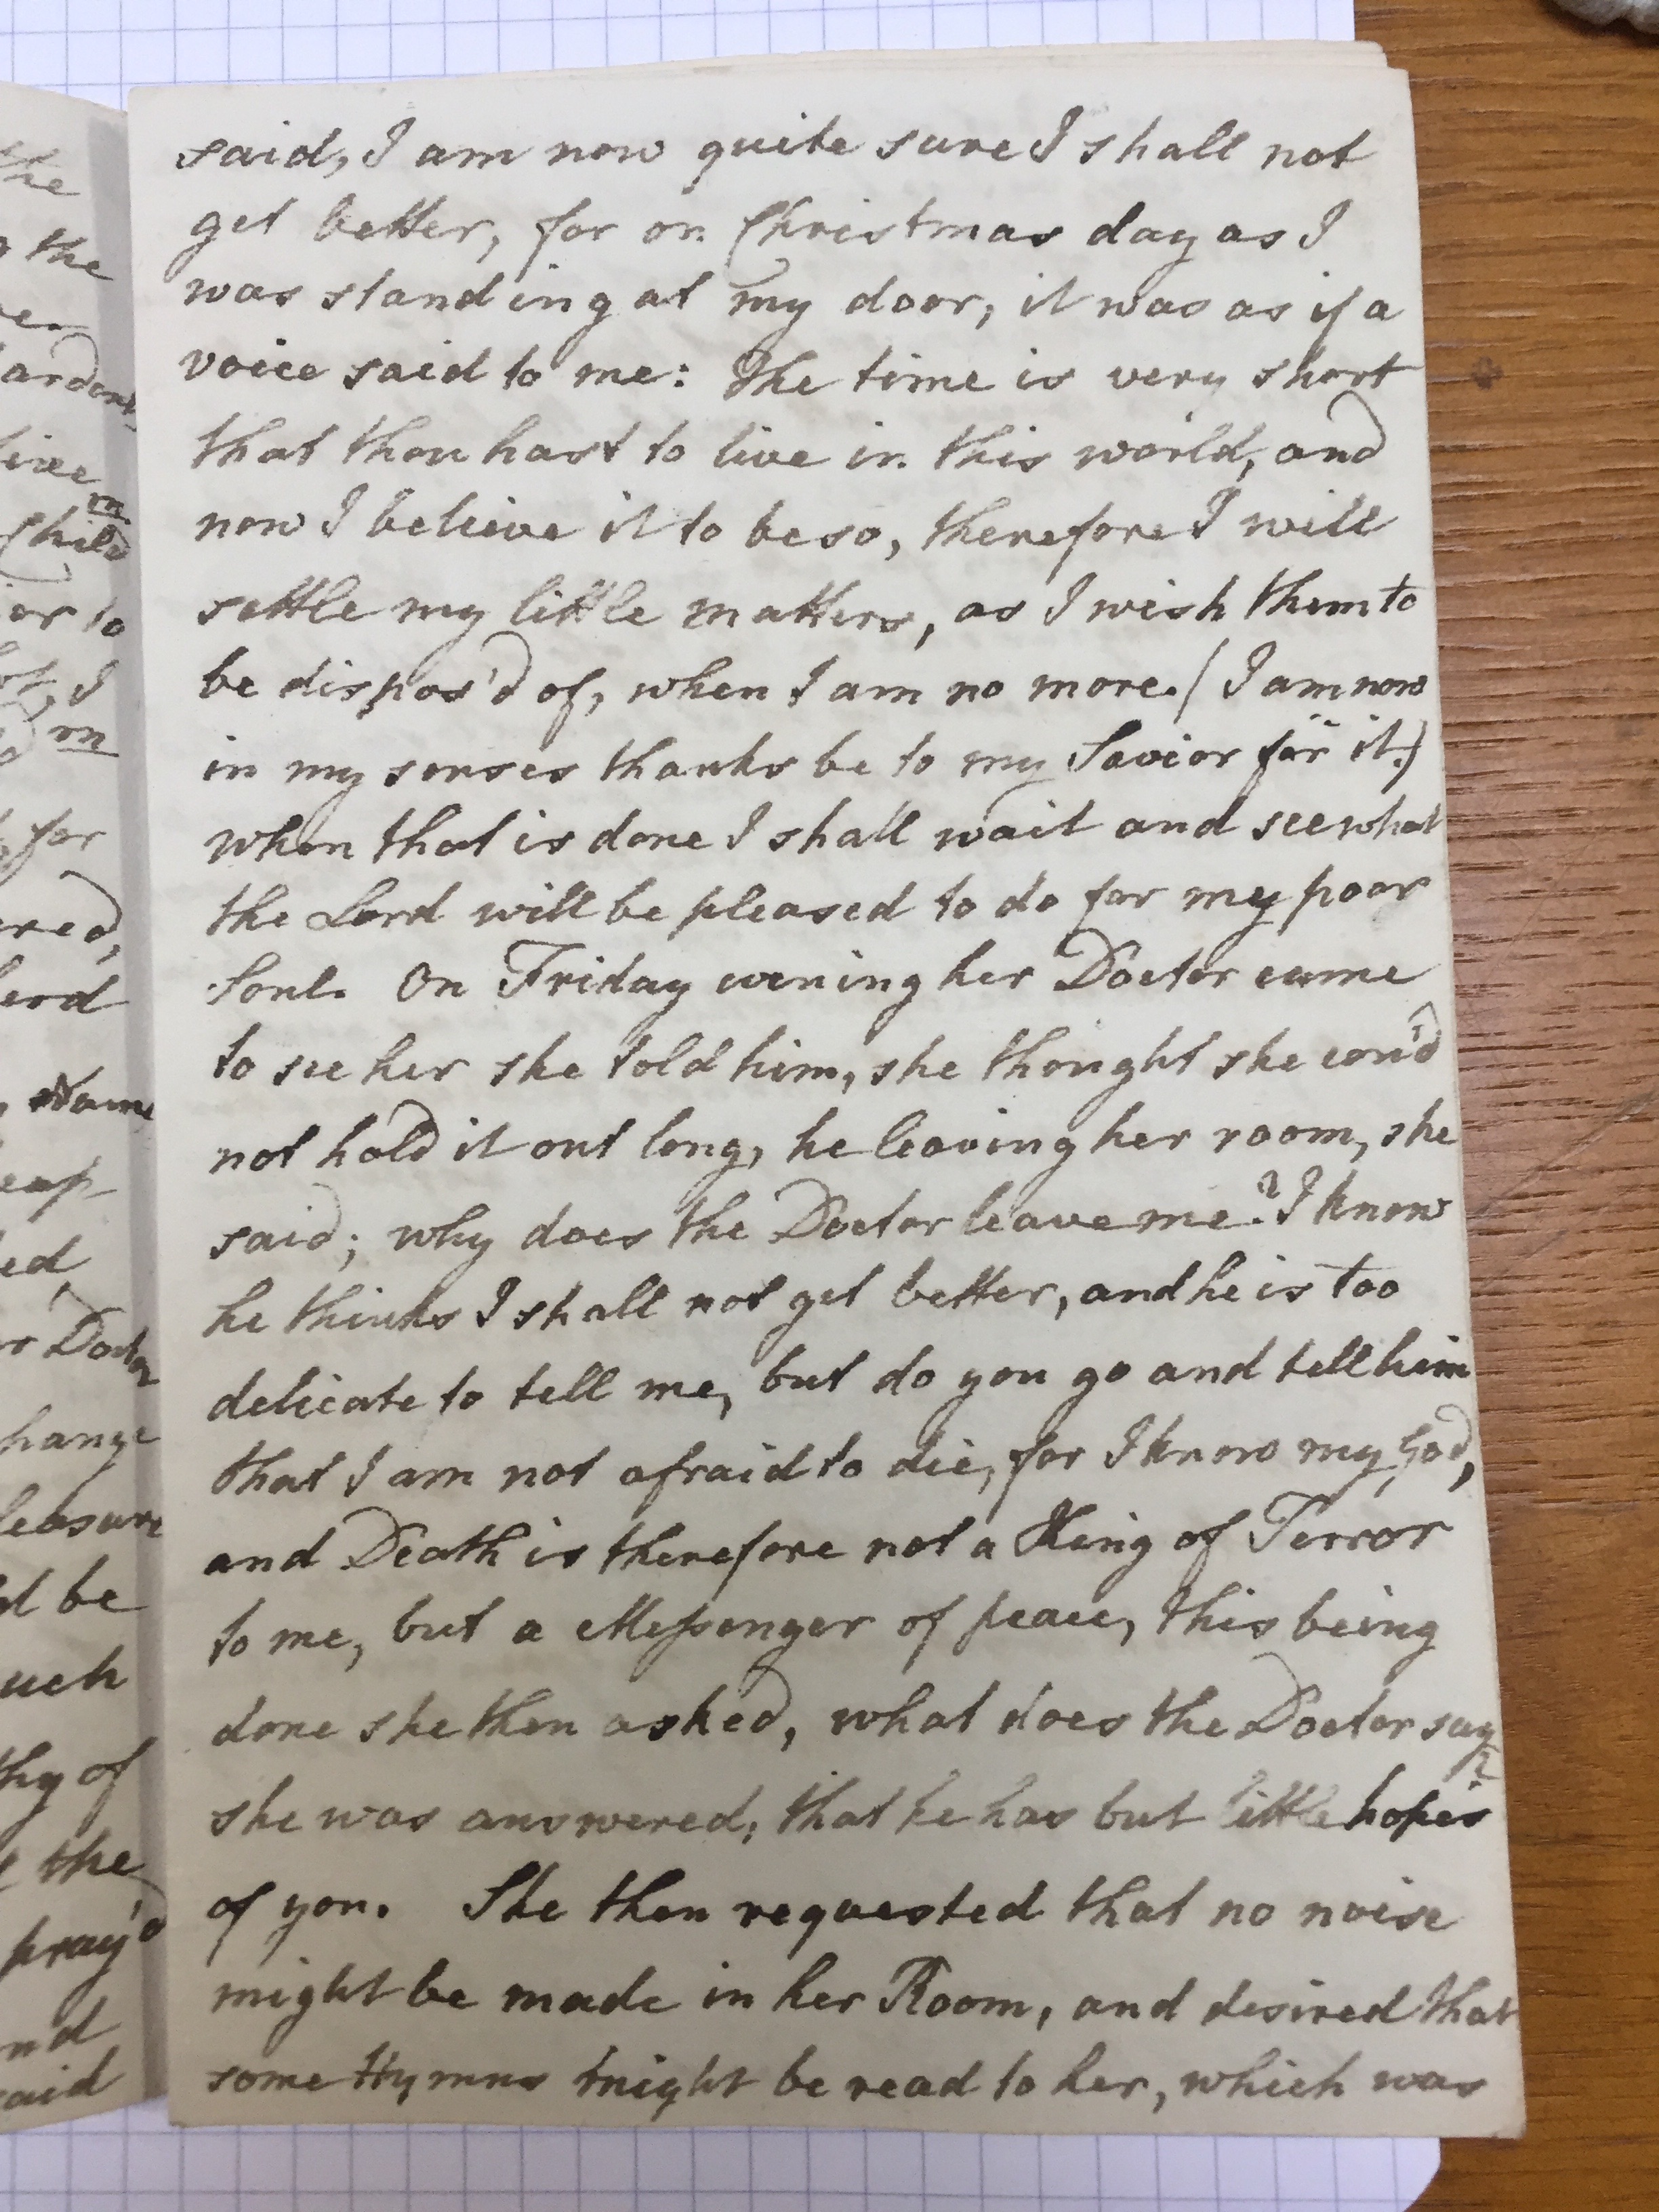 said, I am now quite sure I shall not
get better, for on Christmas day as I
was standing at my door, it was as if a
voice said to me: The time is very short
that thou hast to live in this world, and
now I believe it to be so, therefore I will
settle my little matters, as I wish them to
be dispos'd of, when I am no more. (I am now
in my senses thanks be to my Savior for it.)
when that is done I shall wait and see what
the Lord will be pleased to do for my poor
Soul. On Friday evening her Doctor came
to see her she told him, she thought she cou'd
not hold it out long, he leaving her room, she
said; why does the Doctor leave me? I know
he thinks I shall not get better, and he is too
delicate to tell me, but do you go and tell him
that I am not afraid to die, for I know my God,
and Death is therefore not a King of Terror
to me, but a Messenger of peace, this being
done she then asked, what does the Doctor say?
she was answered, that he has but little hopes
of you. She then requested that no noise
might be made in her Room, and desired that
some Hymns might be read to her, which was
the
the
Child
or to
I
m
for
Name
Doctor
hange
leasure
be
uch
of
the
pray'd
nd
aid